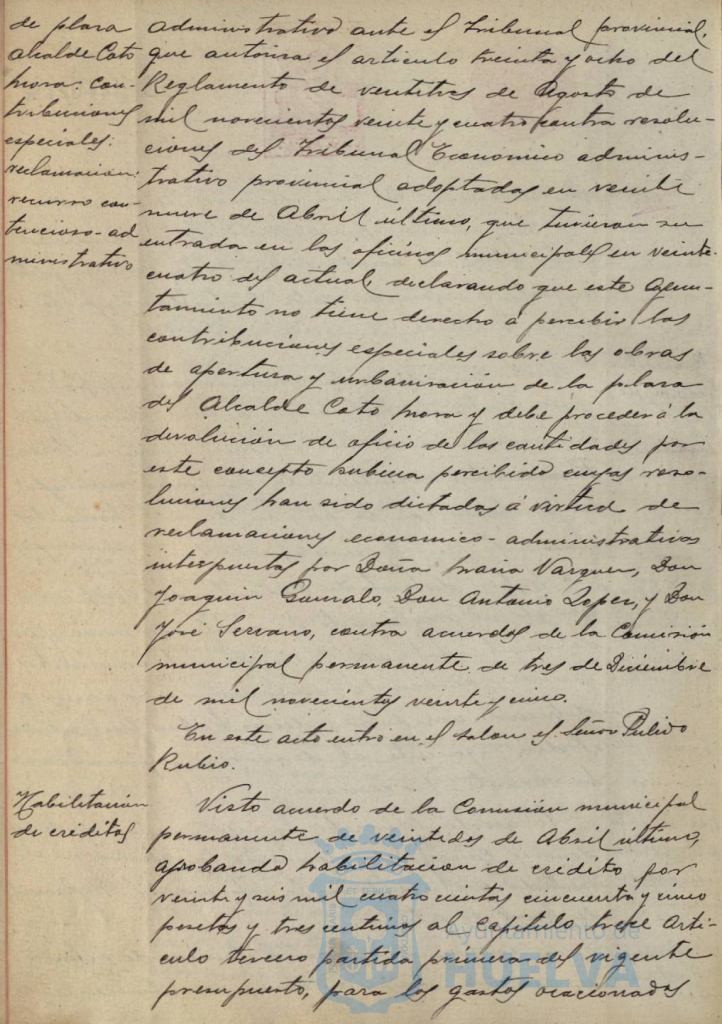 de plaza
Alcalde Coto
Mora. Con-
tribuciones
especiales.
reclamacion:
recurso con-
tencioso-ad
ministrativo
administrativo ante el Tribunal provincial,
que autoriza el articulo treinta y ocho del
Reglamento de ventitres de Agosto de
mil novecientos veinte y cuatro contra resolu-
ciones del Tribunal Economico adminis-
trativo provincial adoptadas en veinte
nueve de Abril último, que tuvieron su
entrada en las oficinas municipales en veinte
cuatro del actual, declarando que este Ayun-
tamiento no tiene derecho á percibir las
contribuciones especiales sobre las obras
de apertura y urbanización de la plaza
del Alcalde Coto Mora y debe proceder á la
devolución de oficio de las cantidades por
este concepto hubiera percibido cuyas reso-
luciones han sido dictadas á virtud de
reclamaciones economico-administrativas
interpuestas por Doña Maria Vazquez, Don
Joaquin Gonzalo, Don Antonio Lopez, y Don
José Serrano, contra acuerdos de la Comisión
municipal permanente de tres de Diciembre
de mil novecientos veinte y cinco.
En este acto entro en el salon el Señor Pulido
Rubio.
Habilitación
de creditos
Visto acuerdo de la Comisión municipal
permanente de veintidos de Abril último,
aprobando habilitacion de crédito por
veinte y seis mil cuatrocientas cincuenta y cinco
pesetas y tres centimos al Capitulo trece Arti-
culo tercero partida primera del vigente
presupuesto, para los gastos ocacionados
Ayuntamiento de
HUELVA